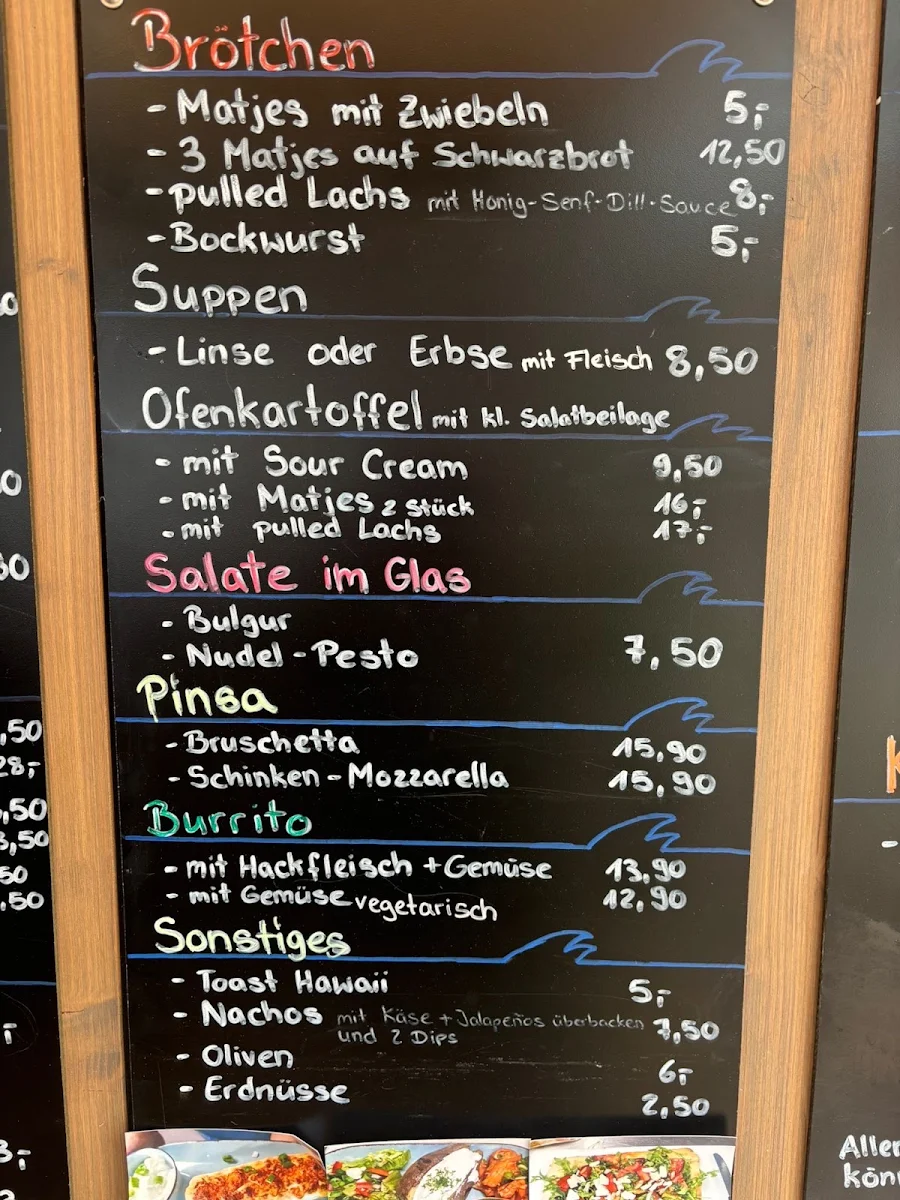 Brötchen
- Matjes mit Zwiebeln 5,-
- 3 Matjes auf Schwarzbrot 12,50
- pulled Lachs mit Honig-Senf-Dill-Sauce 8,-
- Bockwurst 5,-
Suppen
- Linse oder Erbse mit Fleisch 8,50
Ofenkartoffel mit kl. Salatbeilage
- mit Sour Cream 9,50
- mit Matjes 2 stück 16,-
- mit pulled Lachs 17,-
Salate im Glas
- Bulgur
- Nudel-Pesto 7,50
Pinsa
- Bruschetta 15,90
- Schinken-Mozzarella 15,90
Burrito
- mit Hackfleisch + Gemüse 13,90
- mit Gemüse vegetarisch 12,90
Sonstiges
- Toast Hawaii 5,-
- Nachos mit Käse + Jalapeños überbacken 7,50
und 2 Dips
- Oliven 6,-
- Erdnüsse 2,50
,50
28,-
,50
,50
50
,50